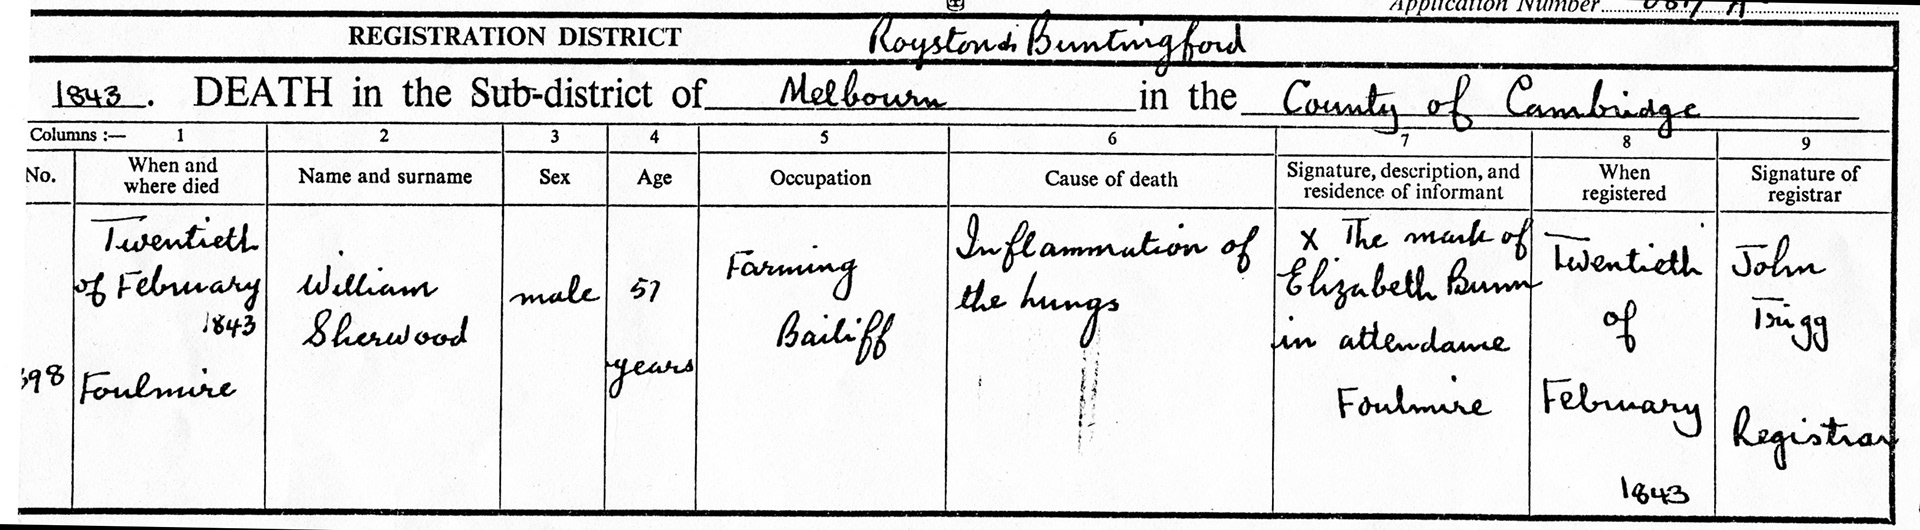 Application Number
REGISTRATION DISTRICT Royston & Buntingford
1843. DEATH in the Sub-district of Melbourn in the County of Cambridge
Columns :— 1 2 3 4 5 6 7 8 9
No. When and where died Name and surname Sex Age Occupation Cause of death Signature, description, and residence of informant When registered Signature of registrar
Twentieth
of February
1843
Foulmire
William
Sherwood
male
57
years
Farming
Bailiff
Inflammation of
the lungs
X The mark of
Elizabeth Bunn
in attendance
Foulmire
Twentieth
of
February
1843
John
Trigg
Registrar